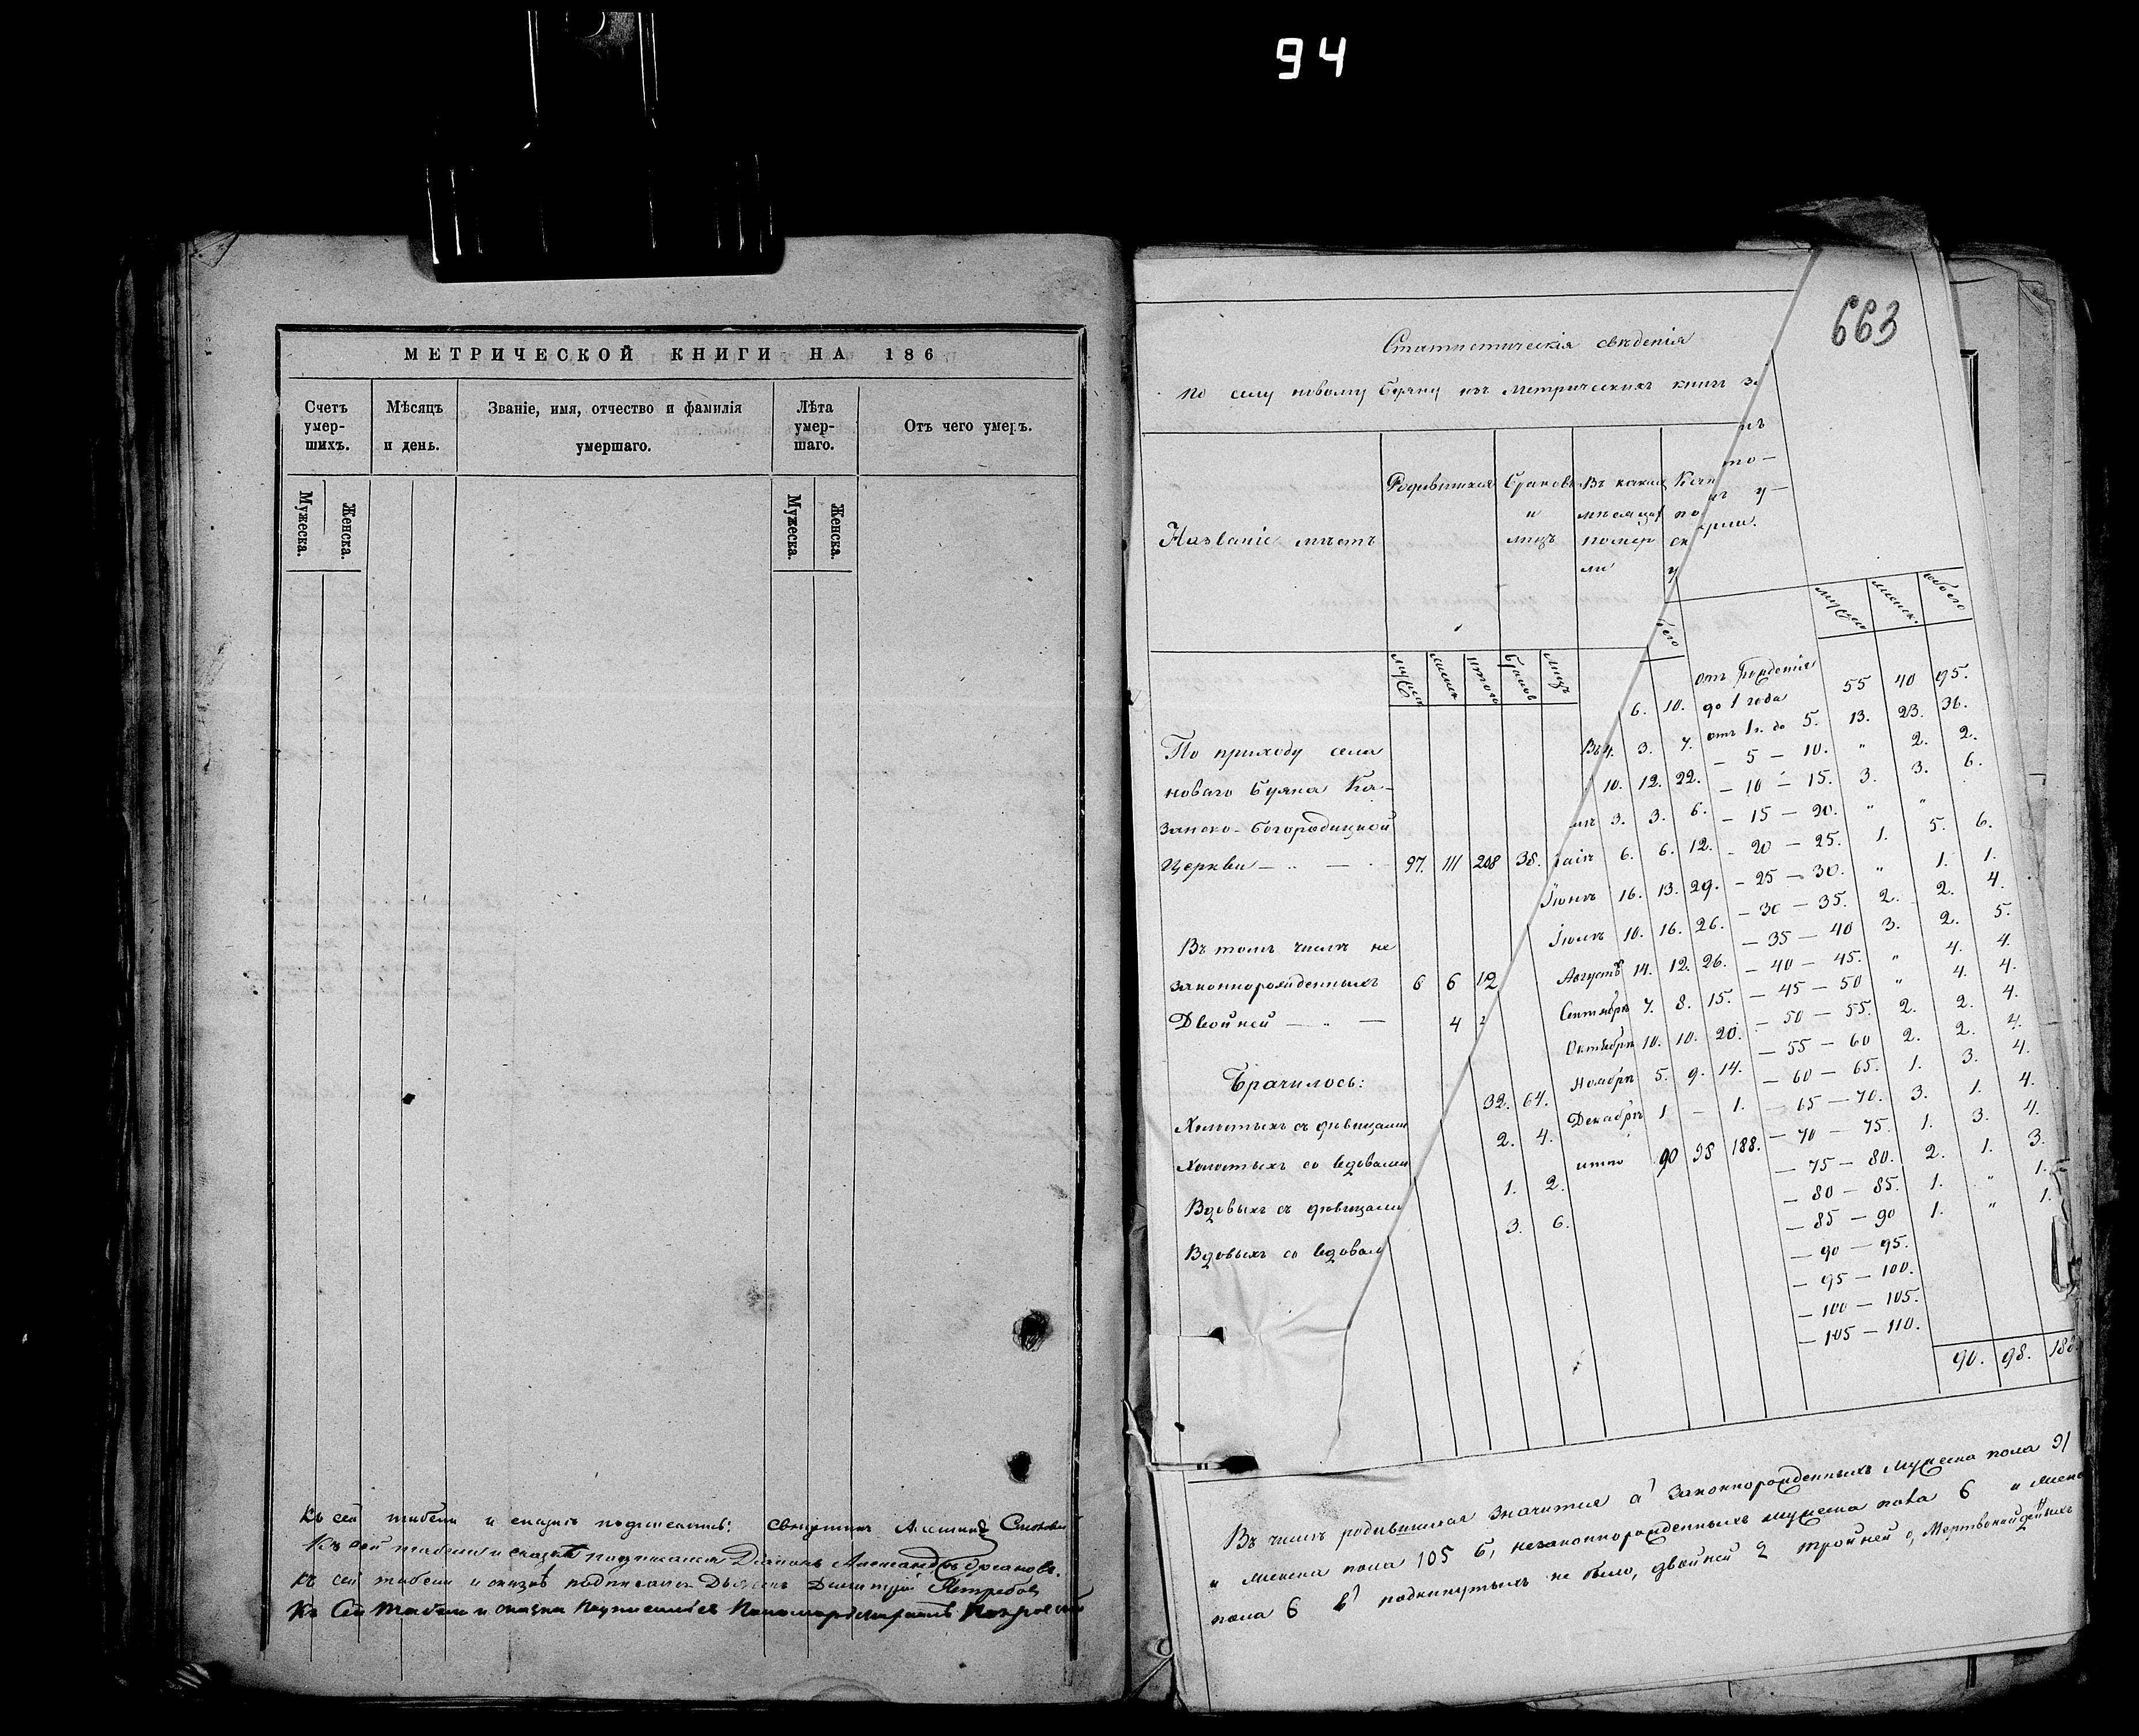 94
МЕТРИЧЕСКОЙ КНИГИ НА 186
Счетъ умер-шихъ.
Мѣсяцъ и день.
Званіе, имя, отчество и фамилія умершаго.
Лѣта умер-шаго.
Отъ чего умеръ.
Мужеска.
Женска.
Мужеска.
Женска.
Къ сей табели и сказкѣ подписались: священникъ
Къ сей табели и сказкѣ подписался Діаконъ Александръ
Къ сей табели и сказкѣ подписался Дьячекъ Димитрій
Къ сей табели и сказкѣ подписался Пономарь
663
Статистическія свѣденія
по селу новому Буяну изъ метрическихъ книгъ за
Названіе мѣстъ
Родившихся
Браковъ и лицъ
Въ какихъ мѣсяцах помер ли
мужска
женска
итого
браковъ
лицъ
мужска
женск.
обоего
По приходу села
новаго Буяна Ка-
занско-Богородицкой
Церкви 97. 111 208 38.
Въ томъ числѣ не
законнорожденныхъ 6 6 12
Двойней 4
Брачилось:
Холостыхъ съ дѣвицами 32. 64.
Холостыхъ со вдовами 2. 4.
Вдовыхъ съ дѣвицами 1. 2.
Вдовыхъ со вдовам 3. 6.
6. 10.
4. 3. 7.
10. 12. 22.
3. 3. 6.
6. 6. 12.
Іюнѣ 16. 13. 29.
Іюлѣ 10. 16. 26.
Августѣ 14. 12. 26.
Сентябрѣ 7. 8. 15.
Октябрѣ 10. 10. 20.
Ноябрѣ 5. 9. 14.
Декабрѣ 1 — 1.
итого 90 98 188.
отъ Рожденія
до 1 года 55 40 95.
отъ 1 г. до 5. 13. 23. 36.
— 5 — 10. " 2. 2.
— 10 — 15. 3. 3. 6.
— 15 — 20. " "
— 20 — 25. 1. 5. 6.
— 25 — 30. " 1. 1.
— 30 — 35. 2. 2. 4.
— 35 — 40 3. 2. 5.
— 40 — 45. " 4. 4.
— 45 — 50 " 4. 4.
— 50 — 55. 2. 2. 4.
— 55 — 60 2. 2. 4.
— 60 — 65. 1. 3. 4.
— 65 — 70. 3. 1. 4.
— 70 — 75. 1. 3. 4.
— 75 — 80. 2. 1. 3.
— 80 — 85. 1. " 1.
— 85 — 90 1. " 1.
— 90 — 95.
— 95 — 100.
— 100 — 105.
— 105 — 110.
90. 98. 188
Въ числѣ родившихся значится а) Законнорожденныхъ мужеска пола 91
и женска пола 105 б) незаконнорожденныхъ мужеска пола 6 и женс
пола 6 в) подкинутыхъ не было, двойней 2 тройней 0,